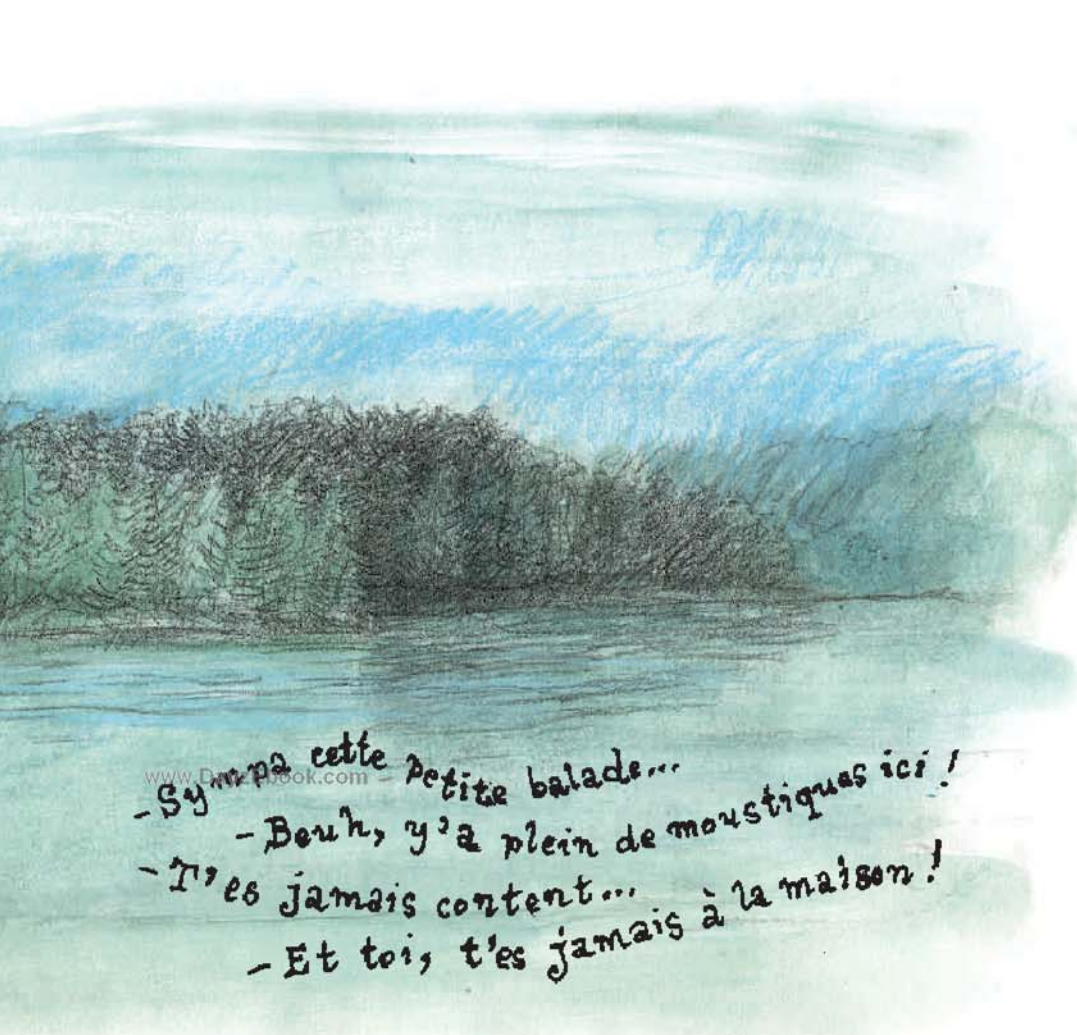 -Sympa cette petite balade...
-Beuh, y'a plein de moustiques ici !
-T'es jamais content...
-Et toi, t'es jamais à la maison !